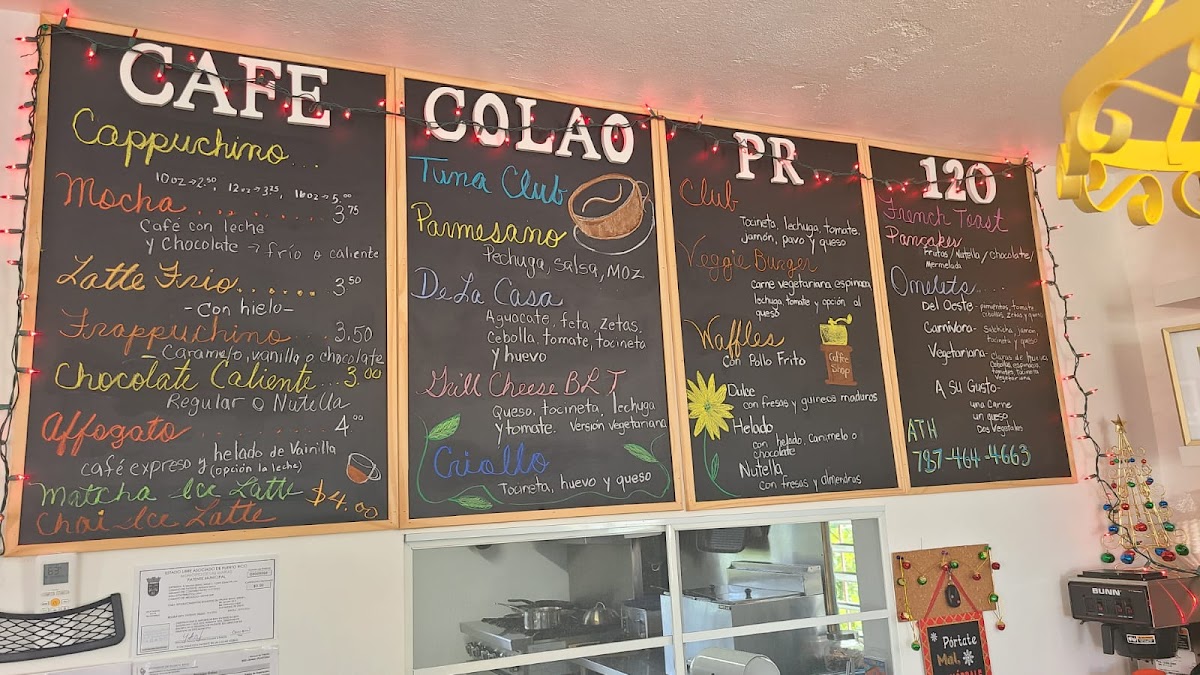 CAFE COLAO PR 120
Cappuchino...
10oz = 2.50, 12oz = 3.25, 16oz = 5.00
Mocha ........ 3.75
Café con leche
y chocolate → frío o caliente
Latte Frio ....... 3.50
- con hielo -
Frappuchino .... 3.50
- Caramelo, vanilla o chocolate
Chocolate Caliente... 3.00
Regular o Nutella
Affogato ........ 4.00
helado de Vainilla
café expreso y (opción la leche)
Matcha Ice Latte $4.00
Chai Ice Latte
Tuna Club
Parmesano
Pechuga, salsa, moz
De La Casa
Aguacate, feta, zetas,
cebolla, tomate, tocineta
y huevo
Grill Cheese BLT
Queso, tocineta, lechuga
y tomate. Versión vegetariana
Criollo
Tocineta, huevo y queso
Club
Tocineta, lechuga, tomate,
jamón, pavo y queso
Veggie Burger
Carne vegetariana espinaca,
lechuga, tomate y opción al
queso
Waffles
con Pollo Frito
Coffee
Shop
Dulce
con fresas y guineos maduros
Helado
con helado, caramelo o
chocolate
Nutella
con fresas y almendras
French Toast
Pancakes
Frutas/Nutella/chocolate/
mermelada
Omelets.....
Del Oeste - pimientos, tomate
cebollas, zetas y queso
Carnívora - Salchicha, jamón,
tocineta y queso
Vegetariana - claras de huevo
cebollas, espinacas,
tomates, tocineta
vegetariana
A su Gusto -
una Carne
un queso
Dos Vegetales
ATH
787-464-4663
ESTADO LIBRE ASOCIADO DE PUERTO RICO
PATENTE MUNICIPAL
BUNN
Pórtate
Mal,